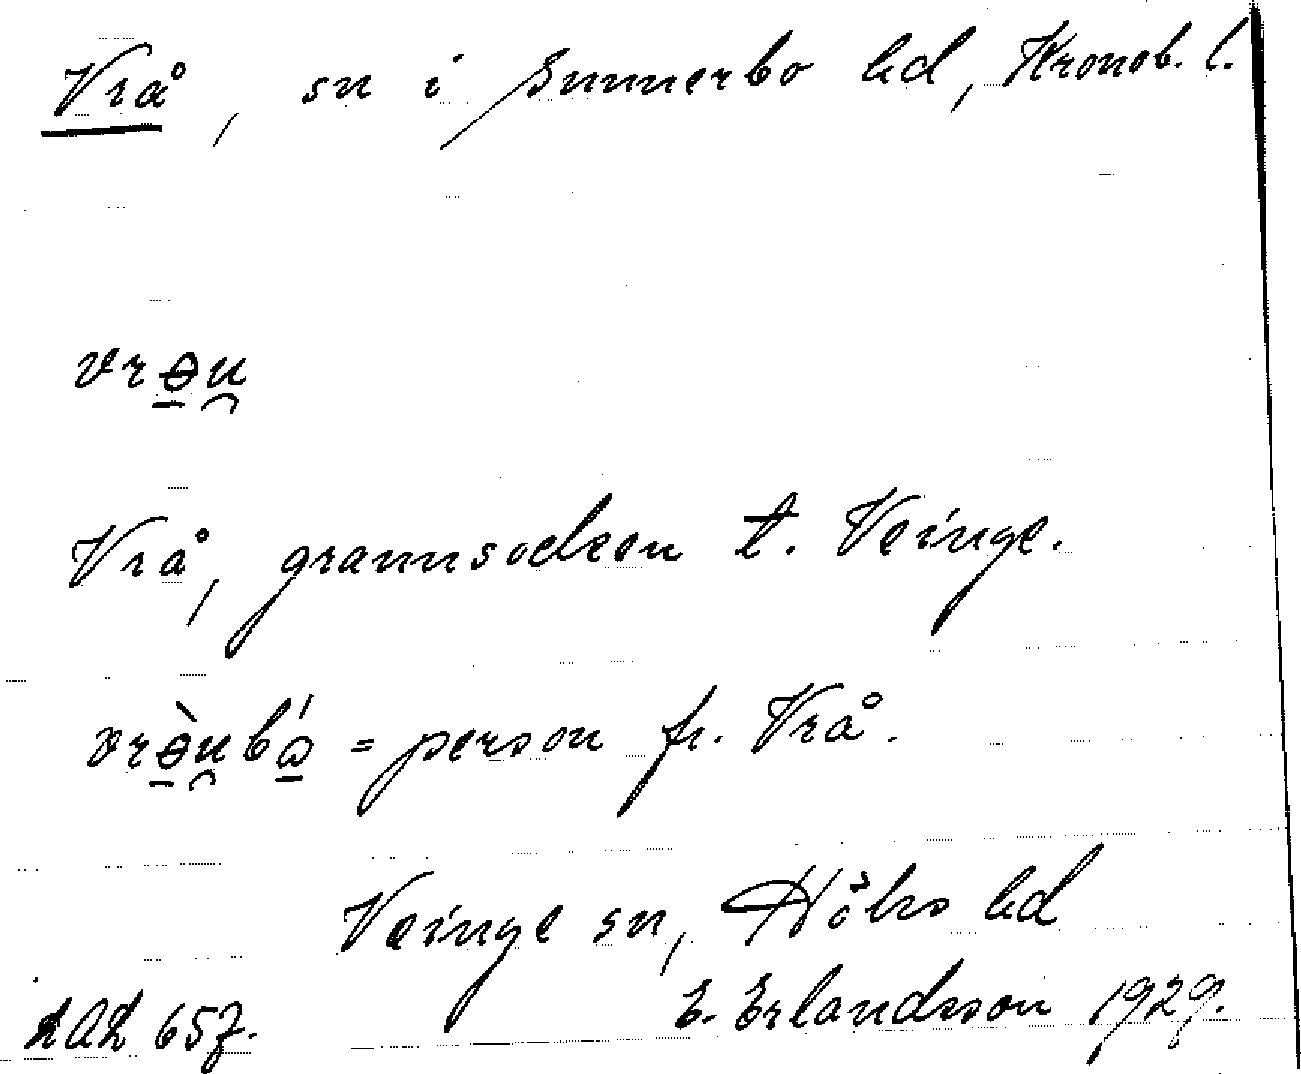 Vrå, sn i Sunnerbo hd, Kronob. l.
vrɵu̯
Vrå, grannsocken t. Veinge.
vrɵ̀u̯bó = person fr. Vrå.
Veinge sn, Höks hd
LAL 657. E. Erlandsson 1929.